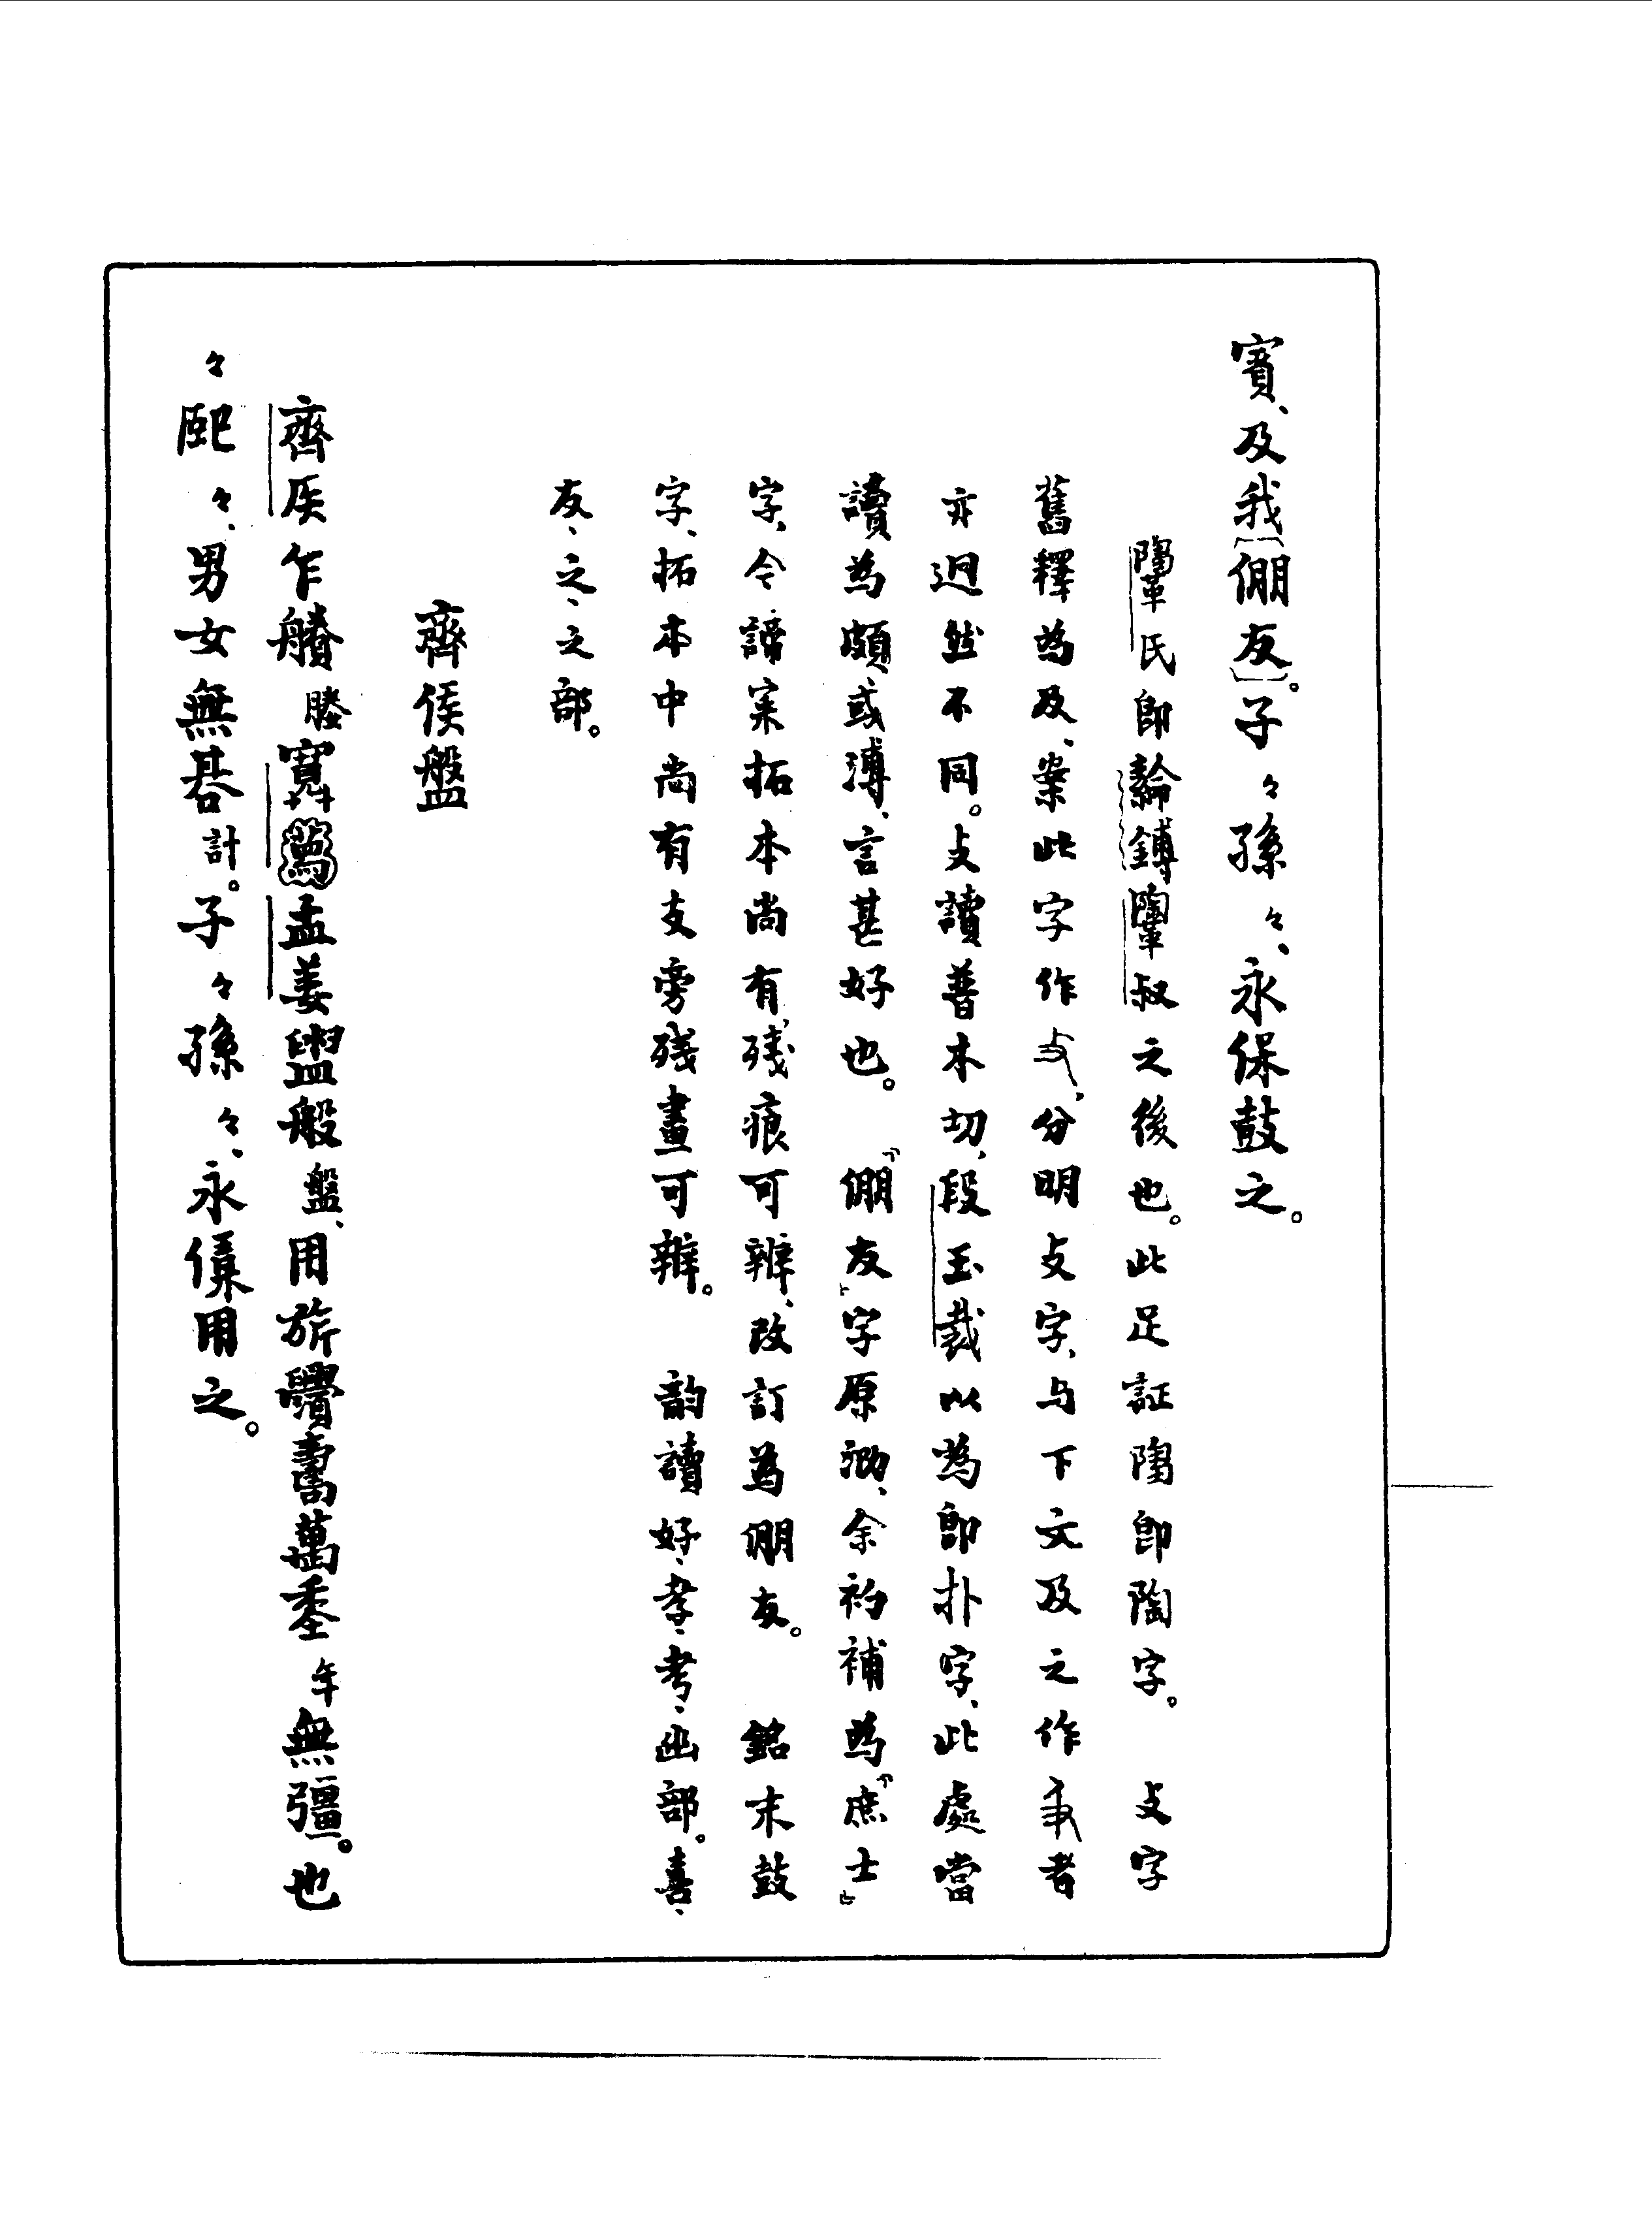 賓、及我〔倗友〕。子〻孫〻、永保鼓之。
氏即鎛叔之後也。此足証即陶字。攴字
舊釋為及、案此字作攴、分明攴字、与下文及之作者
亦迥然不同。攴讀普木切、段玉裁以為即扑字、此處當
讀為頗、或溥、言甚好也。「倗友」字原泐、余初補為「庶士」
字、今諦案拓本尚有残痕可辨、改訂為倗友。 銘末鼓
字、拓本中尚有支旁残畫可辨。 韵讀 好、孝、考、幽部。喜、
友、之、之部。
齊侯盤
齊侯乍賸媵寬孟姜盥般盤、用旂釁壽萬年年無彊。也
〻巸〻、男女無朞計。子〻孫〻、永保用之。